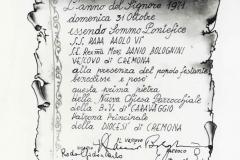 L'anno del Signore 1971
domenica 31 Ottobre
essendo Sommo Pontefice
S.S. PAPA PAOLO VI°
S.E. Rev.ma Mons. DANIO BOLOGNINI
VESCOVO di CREMONA
alla presenza del popolo festante
benedisse e pose
questa prima pietra
della Nuova Chiesa Parrocchiale
della B.V. di CARAVAGGIO
Patrona Principale
della DIOCESI di CREMONA
IL VESCOVO